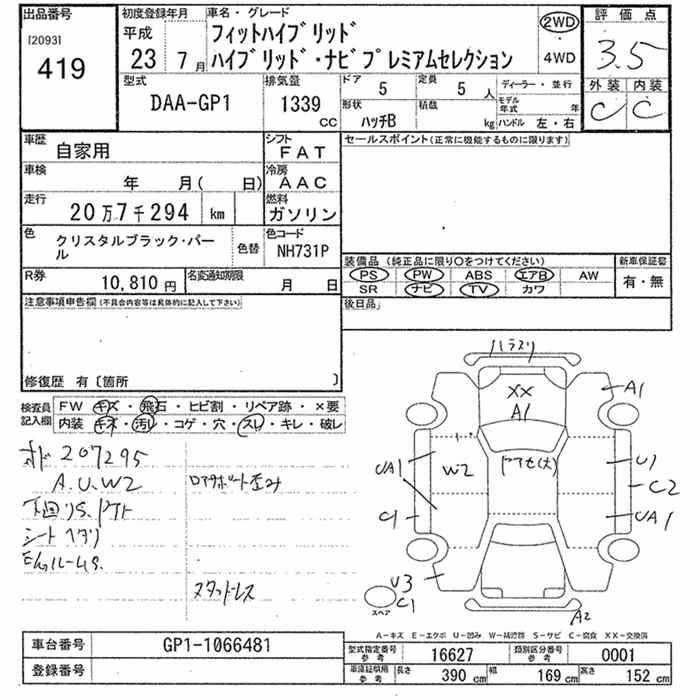 出品番号
[2093]
419
初度登録年月
平成
23 7月
車名・グレード
フィットハイブリッド
ハイブリッド・ナビプレミアムセレクション
2WD
4WD
評価点
3.5
外装 内装
C C
型式
DAA-GP1
排気量
1339
CC
ドア 5
定員 5人
形状
ハッチB
積載 kg
ディーラー・並行
モデル年式 年
ハンドル 左・右
車歴
自家用
シフト
FAT
車検
年 月( 日)
冷房
AAC
走行
20万7千294 km
燃料
ガソリン
色
クリスタルブラック・パール
色替
色コード
NH731P
R券
10,810円
名変通知期限
月 日
セールスポイント(正常に機能するものに限ります)
装備品(純正品に限り○をつけてください)
PS PW ABS エアB AW
SR ナビ TV カワ
新車保証書
有・無
後日品
注意事項申告欄(不具合内容等は具体的に記入して下さい)
修復歴 有〔箇所 〕
検査員記入欄
FW キズ・飛石・ヒビ割・リペア跡・×要
内装 キズ・汚れ・コゲ・穴・スレ・キレ・破レ
207295
A.U.W2
シートヘタリ
スタッドレス
ハラスリ
XX
A1
A1
UA1
W2
C1
U1
C2
UA1
U3
C1
A2
スペア
A-キズ E-エクボ U-凹み W-補修跡 S-サビ C-腐食 XX-交換済
車台番号
GP1-1066481
登録番号
型式指定番号
参考
16627
類別区分番号
参考
0001
車庫証明用
参考
長さ 390 cm
幅 169 cm
高さ 152 cm